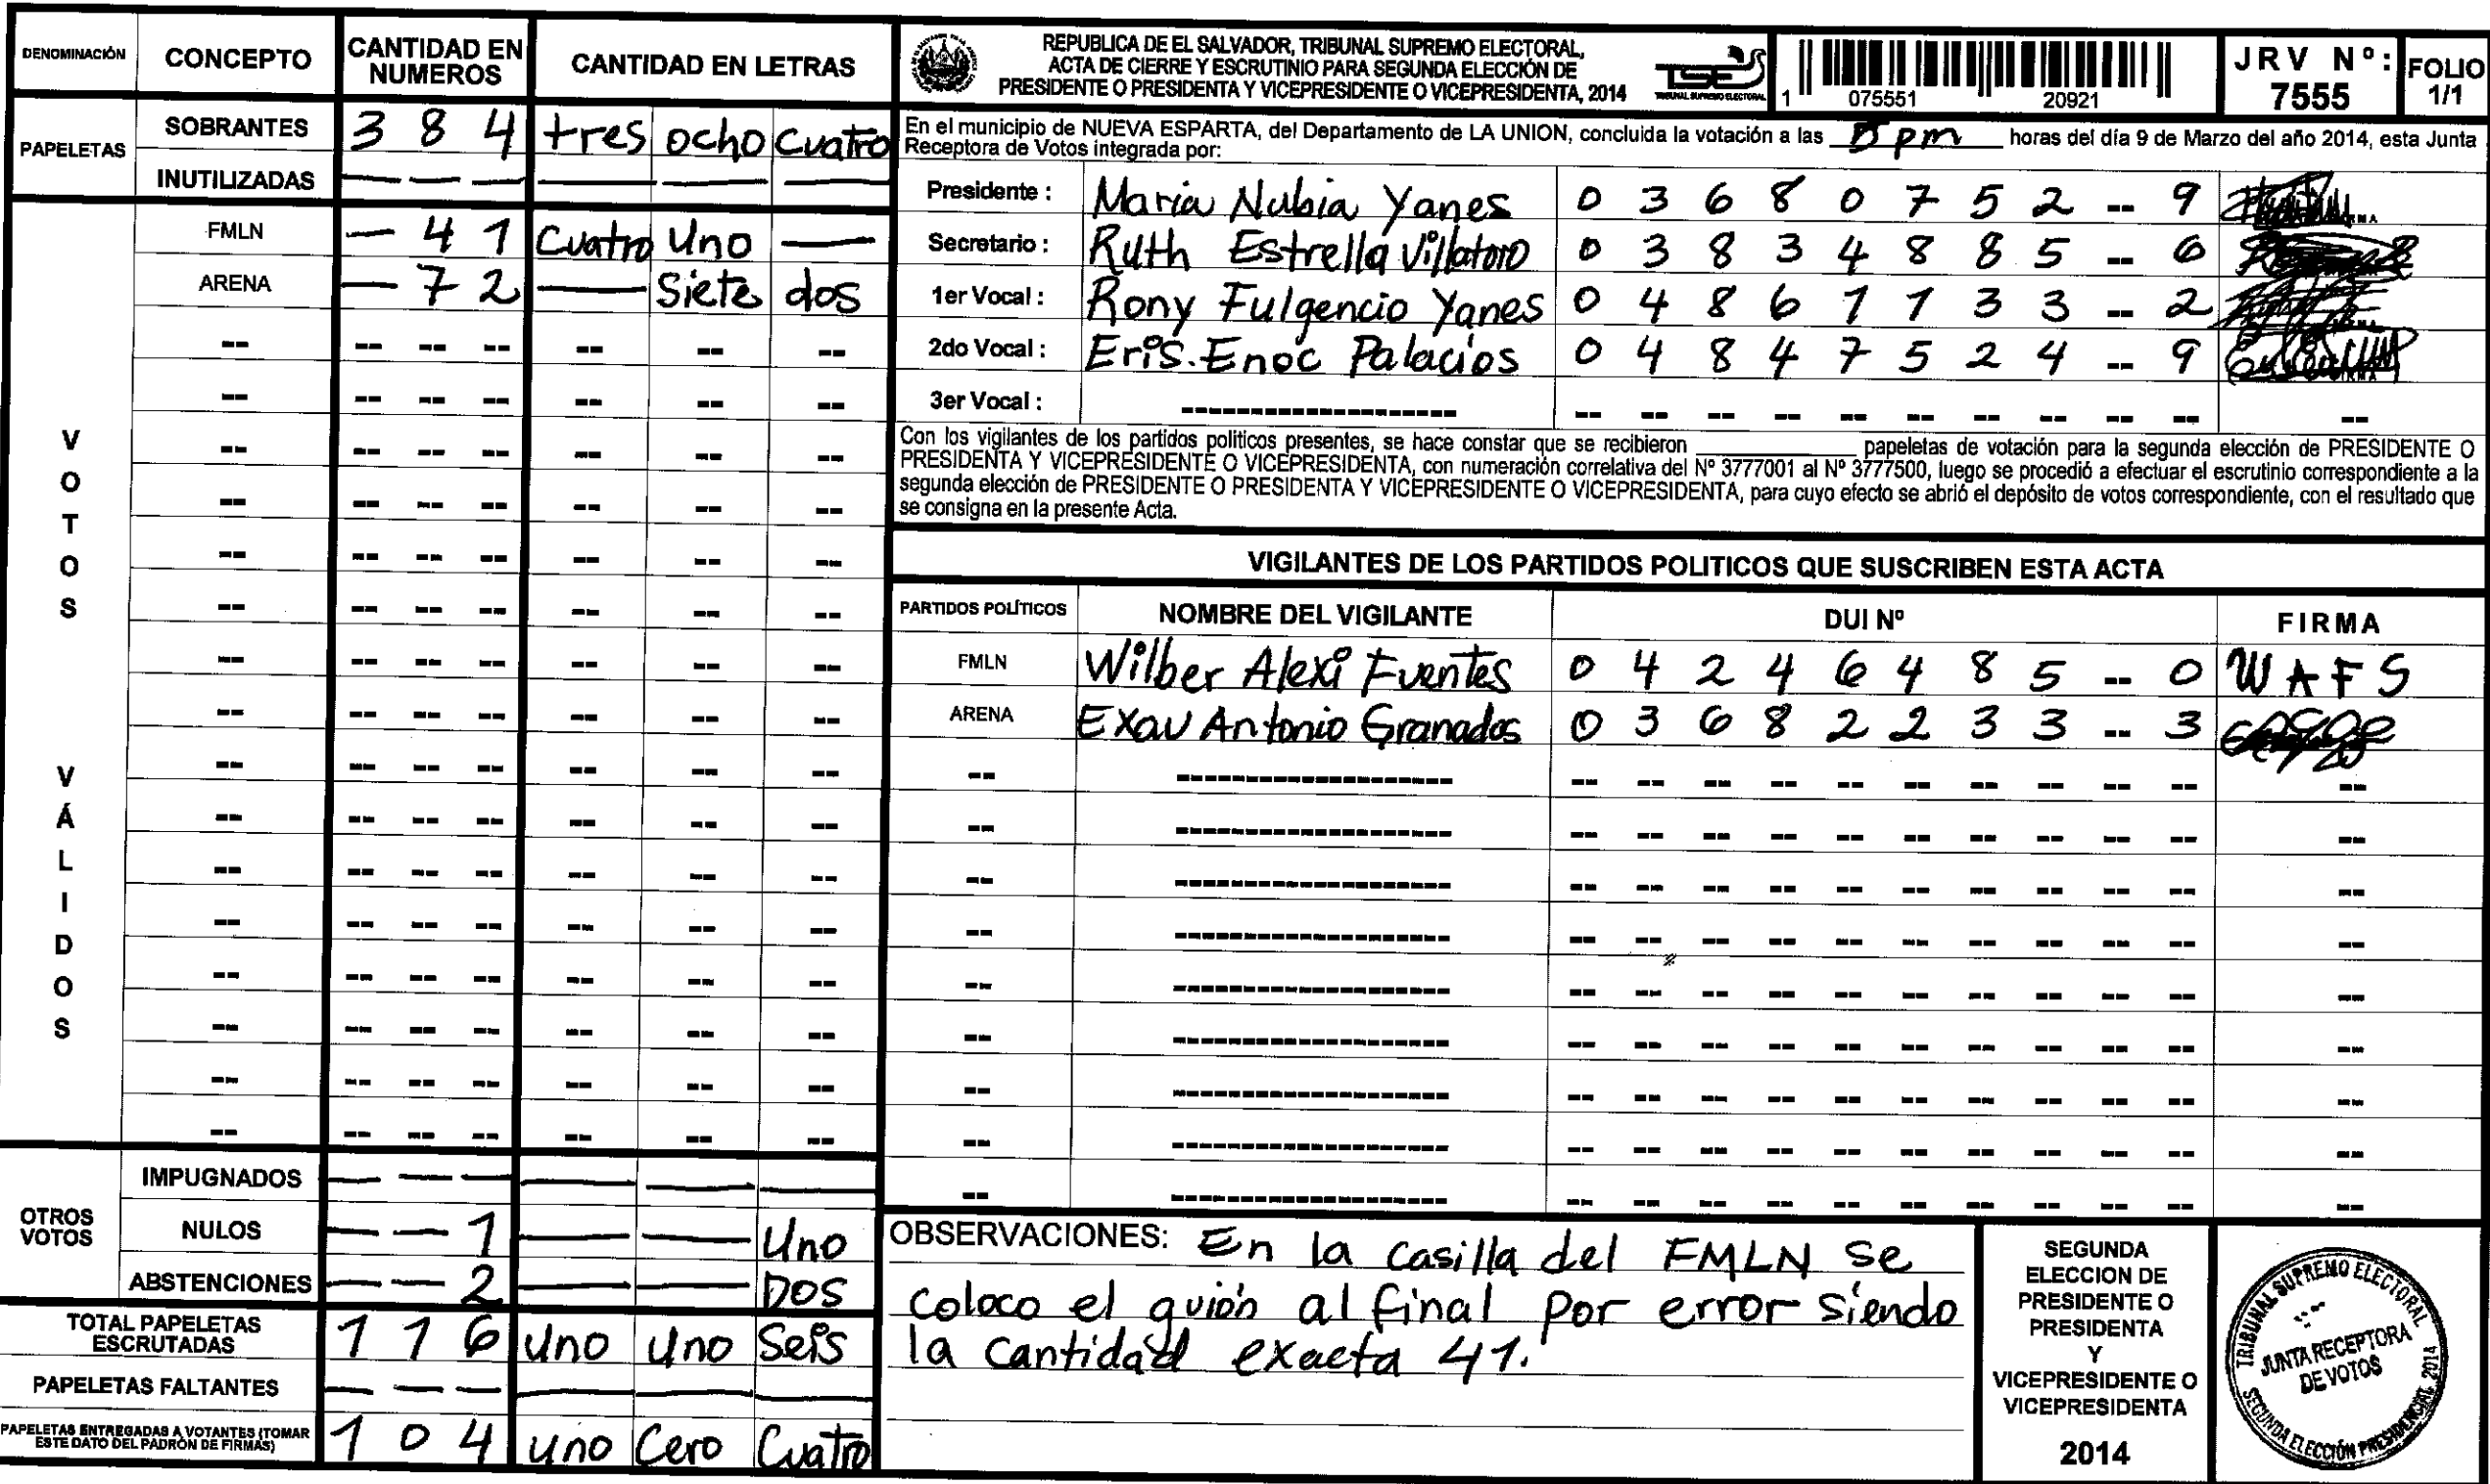 DENOMINACIÓN CONCEPTO CANTIDAD EN NUMEROS CANTIDAD EN LETRAS
PAPELETAS SOBRANTES 3 8 4 tres ocho cuatro
INUTILIZADAS — — — — — —
VOTOS VÁLIDOS
FMLN — 4 1 Cuatro Uno —
ARENA — 7 2 — Siete dos
OTROS VOTOS
IMPUGNADOS — — — — — —
NULOS — — 1 — — Uno
ABSTENCIONES — — 2 — — DOS
TOTAL PAPELETAS ESCRUTADAS 1 1 6 uno uno Seis
PAPELETAS FALTANTES — — — — — —
PAPELETAS ENTREGADAS A VOTANTES (TOMAR ESTE DATO DEL PADRÓN DE FIRMAS) 1 0 4 uno Cero Cuatro
REPUBLICA DE EL SALVADOR, TRIBUNAL SUPREMO ELECTORAL,
ACTA DE CIERRE Y ESCRUTINIO PARA SEGUNDA ELECCIÓN DE
PRESIDENTE O PRESIDENTA Y VICEPRESIDENTE O VICEPRESIDENTA, 2014
TSE
TRIBUNAL SUPREMO ELECTORAL
1 075551 20921
JRV Nº: 7555
FOLIO 1/1
En el municipio de NUEVA ESPARTA, del Departamento de LA UNION, concluida la votación a las 5 pm horas del día 9 de Marzo del año 2014, esta Junta
Receptora de Votos integrada por:
Presidente : Maria Nubia Yanes 0 3 6 8 0 7 5 2 -- 9
Secretario : Ruth Estrella Villatoro 0 3 8 3 4 8 8 5 -- 6
1er Vocal : Rony Fulgencio Yanes 0 4 8 6 1 1 3 3 -- 2
2do Vocal : Eris. Enoc Palacios 0 4 8 4 7 5 2 4 -- 9
3er Vocal :
Con los vigilantes de los partidos politicos presentes, se hace constar que se recibieron ____ papeletas de votación para la segunda elección de PRESIDENTE O
PRESIDENTA Y VICEPRESIDENTE O VICEPRESIDENTA, con numeración correlativa del Nº 3777001 al Nº 3777500, luego se procedió a efectuar el escrutinio correspondiente a la
segunda elección de PRESIDENTE O PRESIDENTA Y VICEPRESIDENTE O VICEPRESIDENTA, para cuyo efecto se abrió el depósito de votos correspondiente, con el resultado que
se consigna en la presente Acta.
VIGILANTES DE LOS PARTIDOS POLITICOS QUE SUSCRIBEN ESTA ACTA
PARTIDOS POLÍTICOS NOMBRE DEL VIGILANTE DUI Nº FIRMA
FMLN Wilber Alexi Fuentes 0 4 2 4 6 4 8 5 -- 0 WAFS
ARENA Exau Antonio Granados 0 3 6 8 2 2 3 3 -- 3
OBSERVACIONES: En la casilla del FMLN se
coloco el guión al final por error siendo
la cantidad exacta 41.
SEGUNDA
ELECCION DE
PRESIDENTE O
PRESIDENTA
Y
VICEPRESIDENTE O
VICEPRESIDENTA
2014
TRIBUNAL SUPREMO ELECTORAL
JUNTA RECEPTORA
DE VOTOS
SEGUNDA ELECCIÓN PRESIDENCIAL 2014